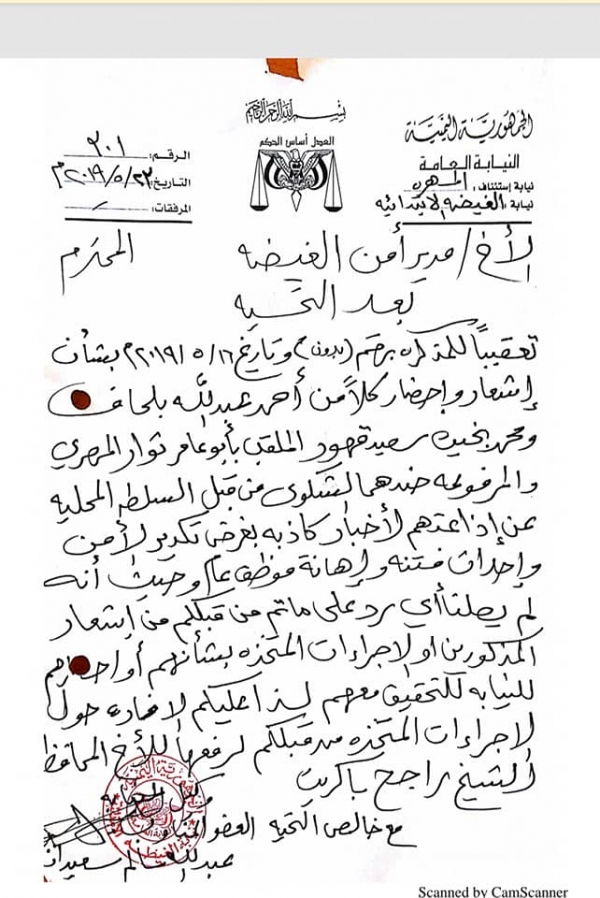 بسم الله الرحمن الرحيم
الجمهورية اليمنية
النيابة العامة
نيابة إستئناف: المهره
نيابة: الغيضه الابتدائيه
العدل أساس الحكم
الرقم: ٣٠١
التاريخ: ٢٠١٩/٥/٢٢م
المرفقات: /
الأخ/ مدير أمن الغيضه المحترم
بعد التحيه
تعقيباً للمذكره برقم (بدون) وتاريخ ٢٠١٩/٥/١٦م بشأن
إشعار وإحضار كلاً من أحمد عبدالله بلحاف
ومحمد بخيت سعيد قهور الملقب بأبو عامر ثوار المهري
والمرفوعه ضدهما الشكوى من قبل السلطه المحليه
عن إذاعتهم لأخبار كاذبه بغرض تكدير لأمن
وإحداث فتنه وإهانة موظف عام وحيث أنه
لم يصلنا أي رد على ماتم من قبلكم من إشعار
المذكورين او لاجراءات المتخذه بشأنهم أو احضارهم
للنيابه للتحقيق معهم لذا عليكم لافاده حول
لاجراءات المتخذه من قبلكم لرفعها للأخ المحافظ
الشيخ راجح باكريت
مع خالص التحيه
وكيل
Scanned by CamScanner